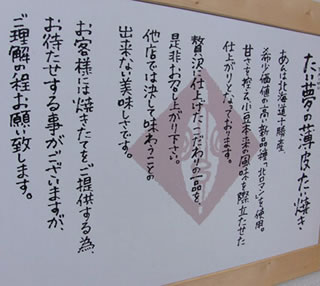 たい夢の薄皮たい焼き
あんは北海道十勝産、
希少価値の高い新品種、"北ロマン"を使用。
甘さを控え小豆本来の風味を際立たせた
仕上がりとなっております。
贅沢に仕上げたこだわりの一品を、
是非お召し上がり下さい。
他店では決して味わうことの
出来ない美味しさです。
お客様に焼きたてをご提供する為、
お待たせする事がございますが、
ご理解の程お願い致します。